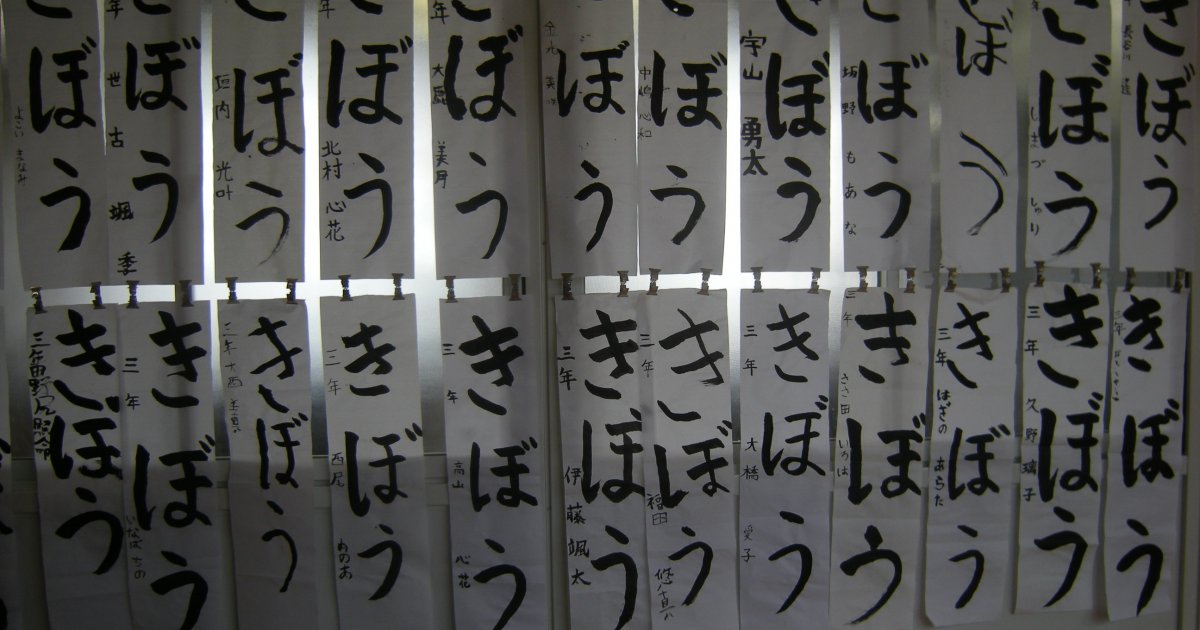 きぼう
ぼう
しまづ しゅり
ぼう
ぼう
坂野 もあな
ぼう
宇山 勇太
ぼう
中嶋 心和
ぼう
ぼう
美月
ぼう
北村 心花
ぼう
垣内 光叶
ぼう
年 世古 颯
ぼう
よこい まなみ
きぼう
三年
きぼう
三年 久野 璃子
きぼう
三年 はぎの あらた
きぼう
三年 ささ田 いろは
きぼう
三年 大橋 愛子
きぼう
三年 福田 悠真
きぼう
三年 伊藤 颯太
きぼう
三年 高山 心花
きぼう
三年 西尾 ののあ
きぼう
三年 大西
きぼう
三年 いなば ちの
きぼう
三年